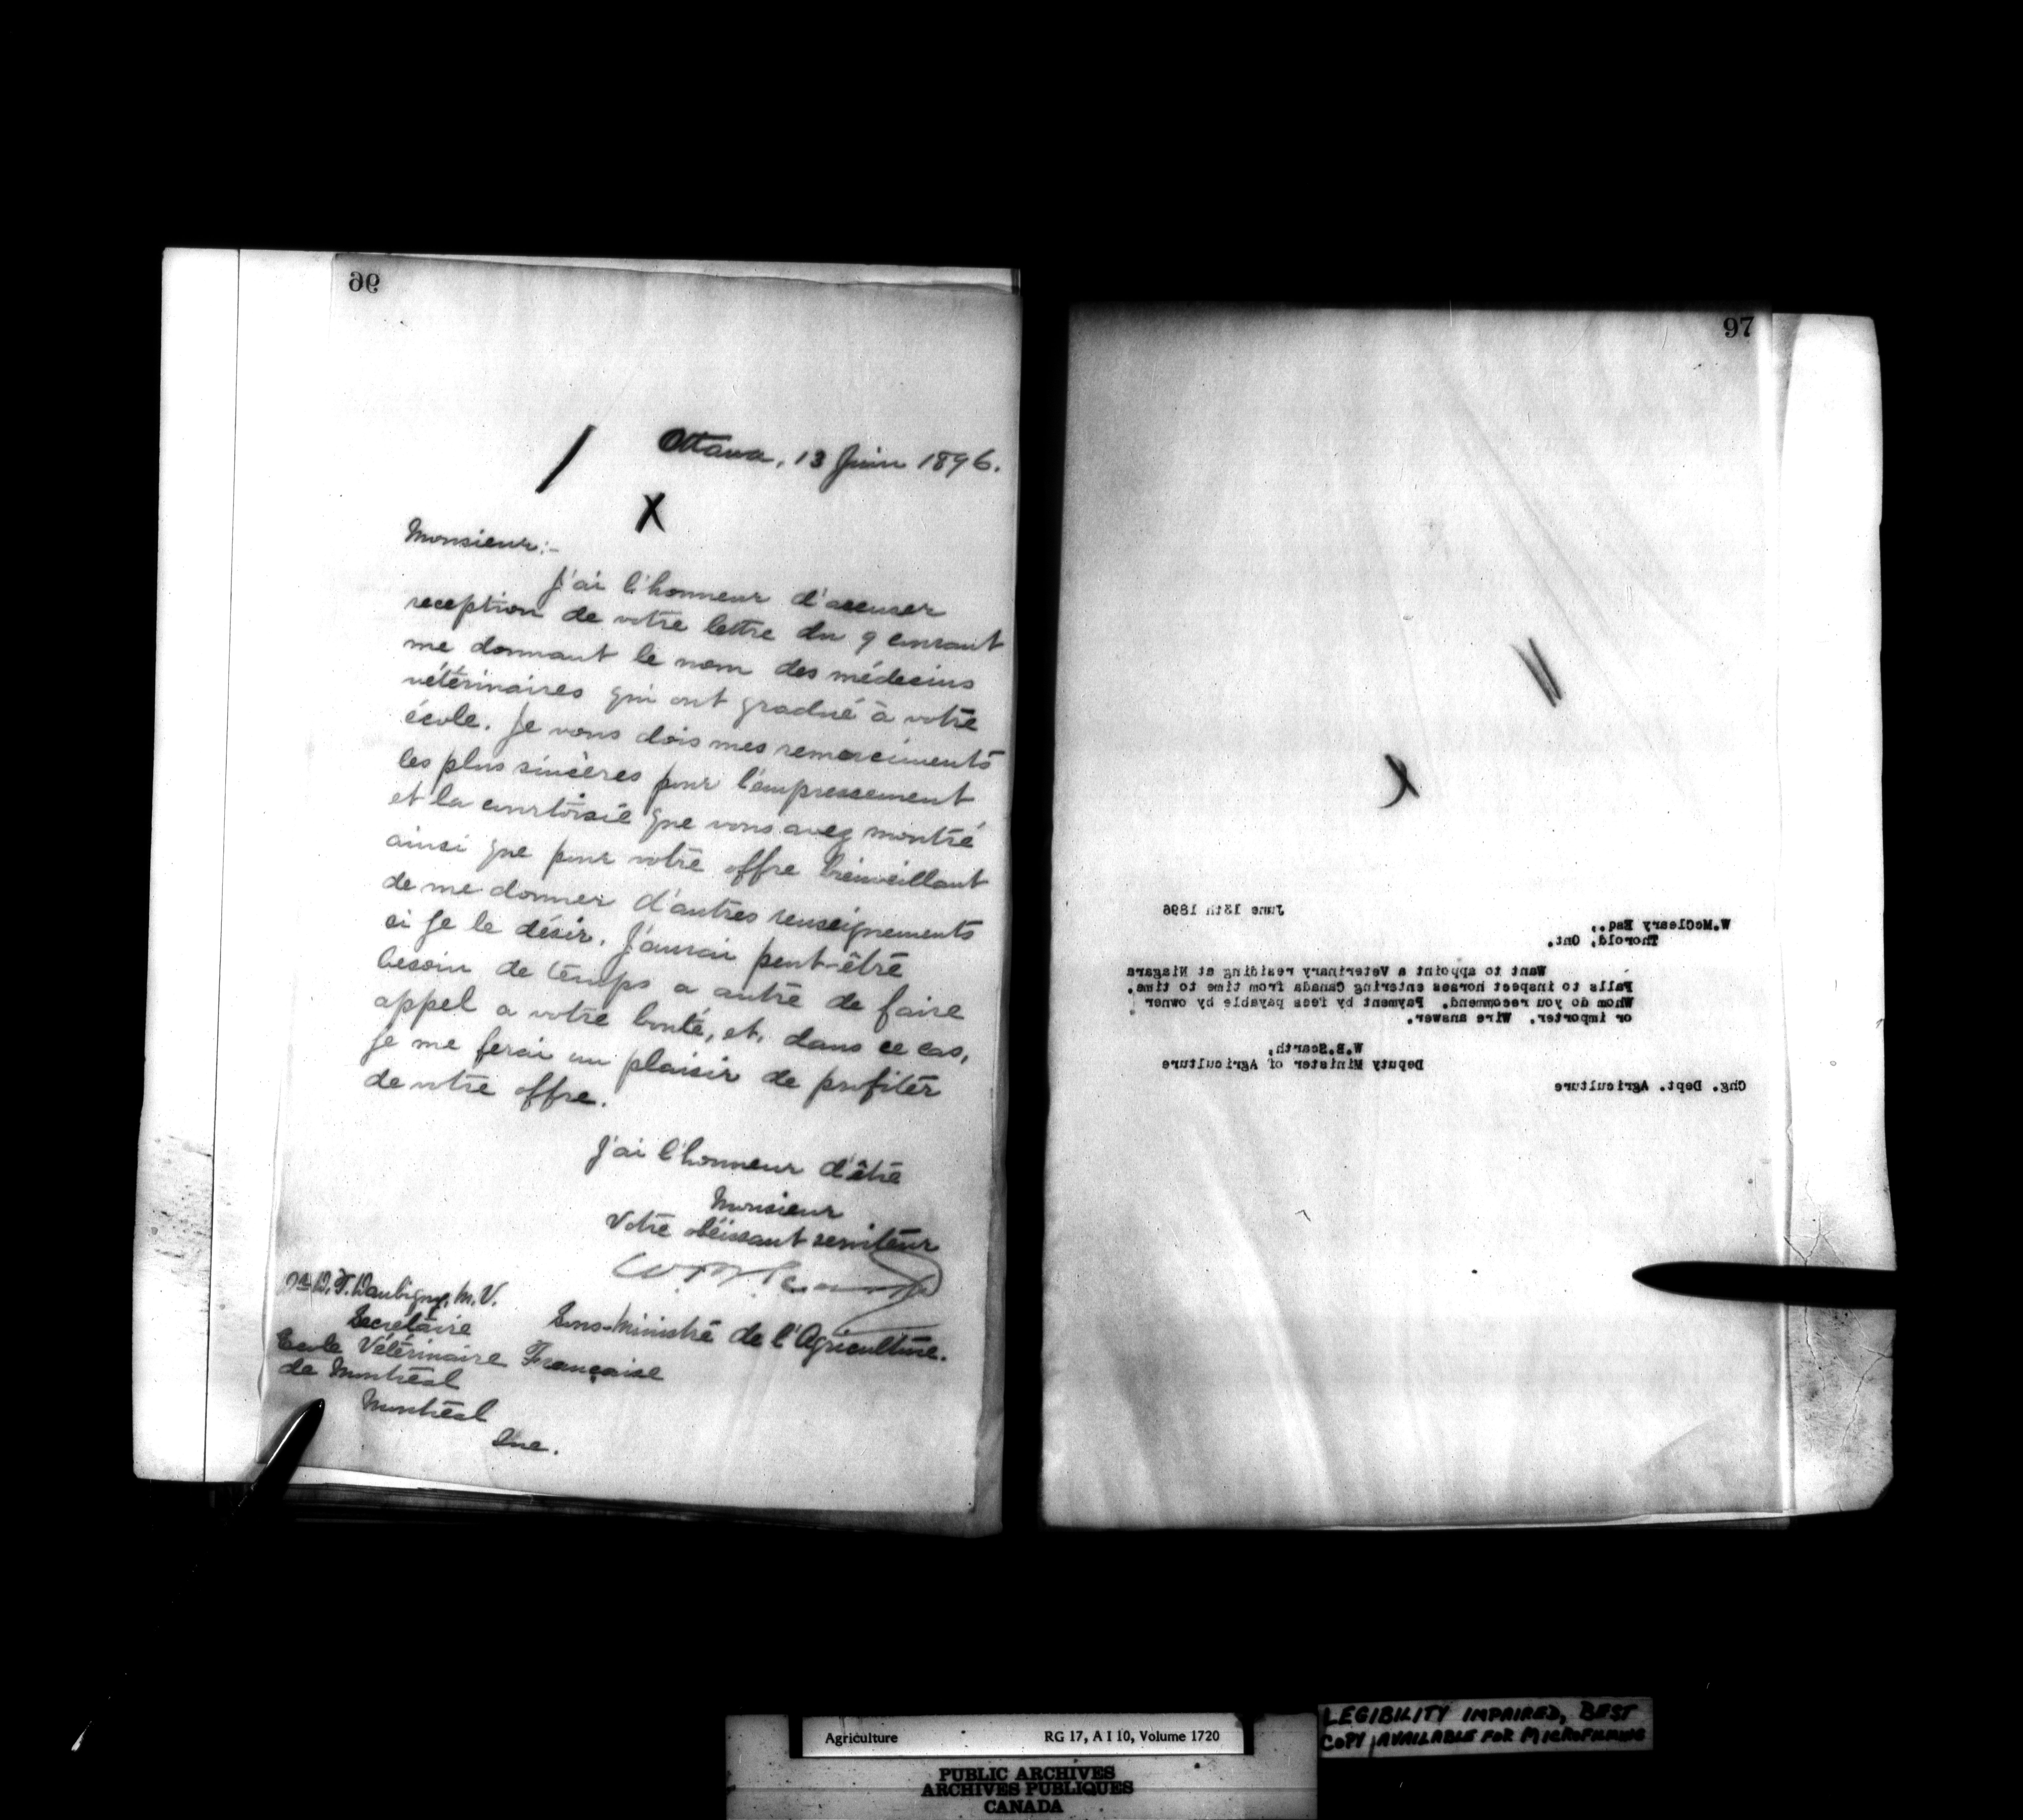 96
Ottawa, 13 Juin 1896.
X
Monsieur:-
J'ai l'honneur d'accuser
reception de votre lettre du 9 courant
me donnant le nom des médecins
vétérinaires qui ont gradué à votre
école. Je vous dois mes remerciments
les plus sincères pour l'empressement
et la courtoisie que vous avez montré
ainsi que pour votre offre bienveillant
de me donner d'autres renseignements
si je le désir. J'aurai peut-être
besoin de temps a autre de faire
appel a votre bonté, et, dans ce cas,
je me ferai un plaisir de profiter
de votre offre.
J'ai l'honneur d'être
Monsieur
Votre obéissant serviteur
Sous-Ministre de l'Agriculture.
V. T. Daubigny, M.V.
Secretaire
Ecole Vétérinaire Française
de Montréal
Montréal
Que.
97
X
June 13th 1896
W.McCleary Esq.,
Thorold, Ont.
Want to appoint a Veterinary residing at Niagara
Falls to inspect horses entering Canada from time to time.
Whom do you recommend. Payment by fees payable by owner
or importer. Wire answer.
W.B.Scarth,
Deputy Minister of Agriculture
Chg. Dept. Agriculture
Agriculture RG 17, A I 10, Volume 1720
PUBLIC ARCHIVES
ARCHIVES PUBLIQUES
CANADA
LEGIBILITY IMPAIRED, BEST
COPY AVAILABLE FOR MICROFILMING